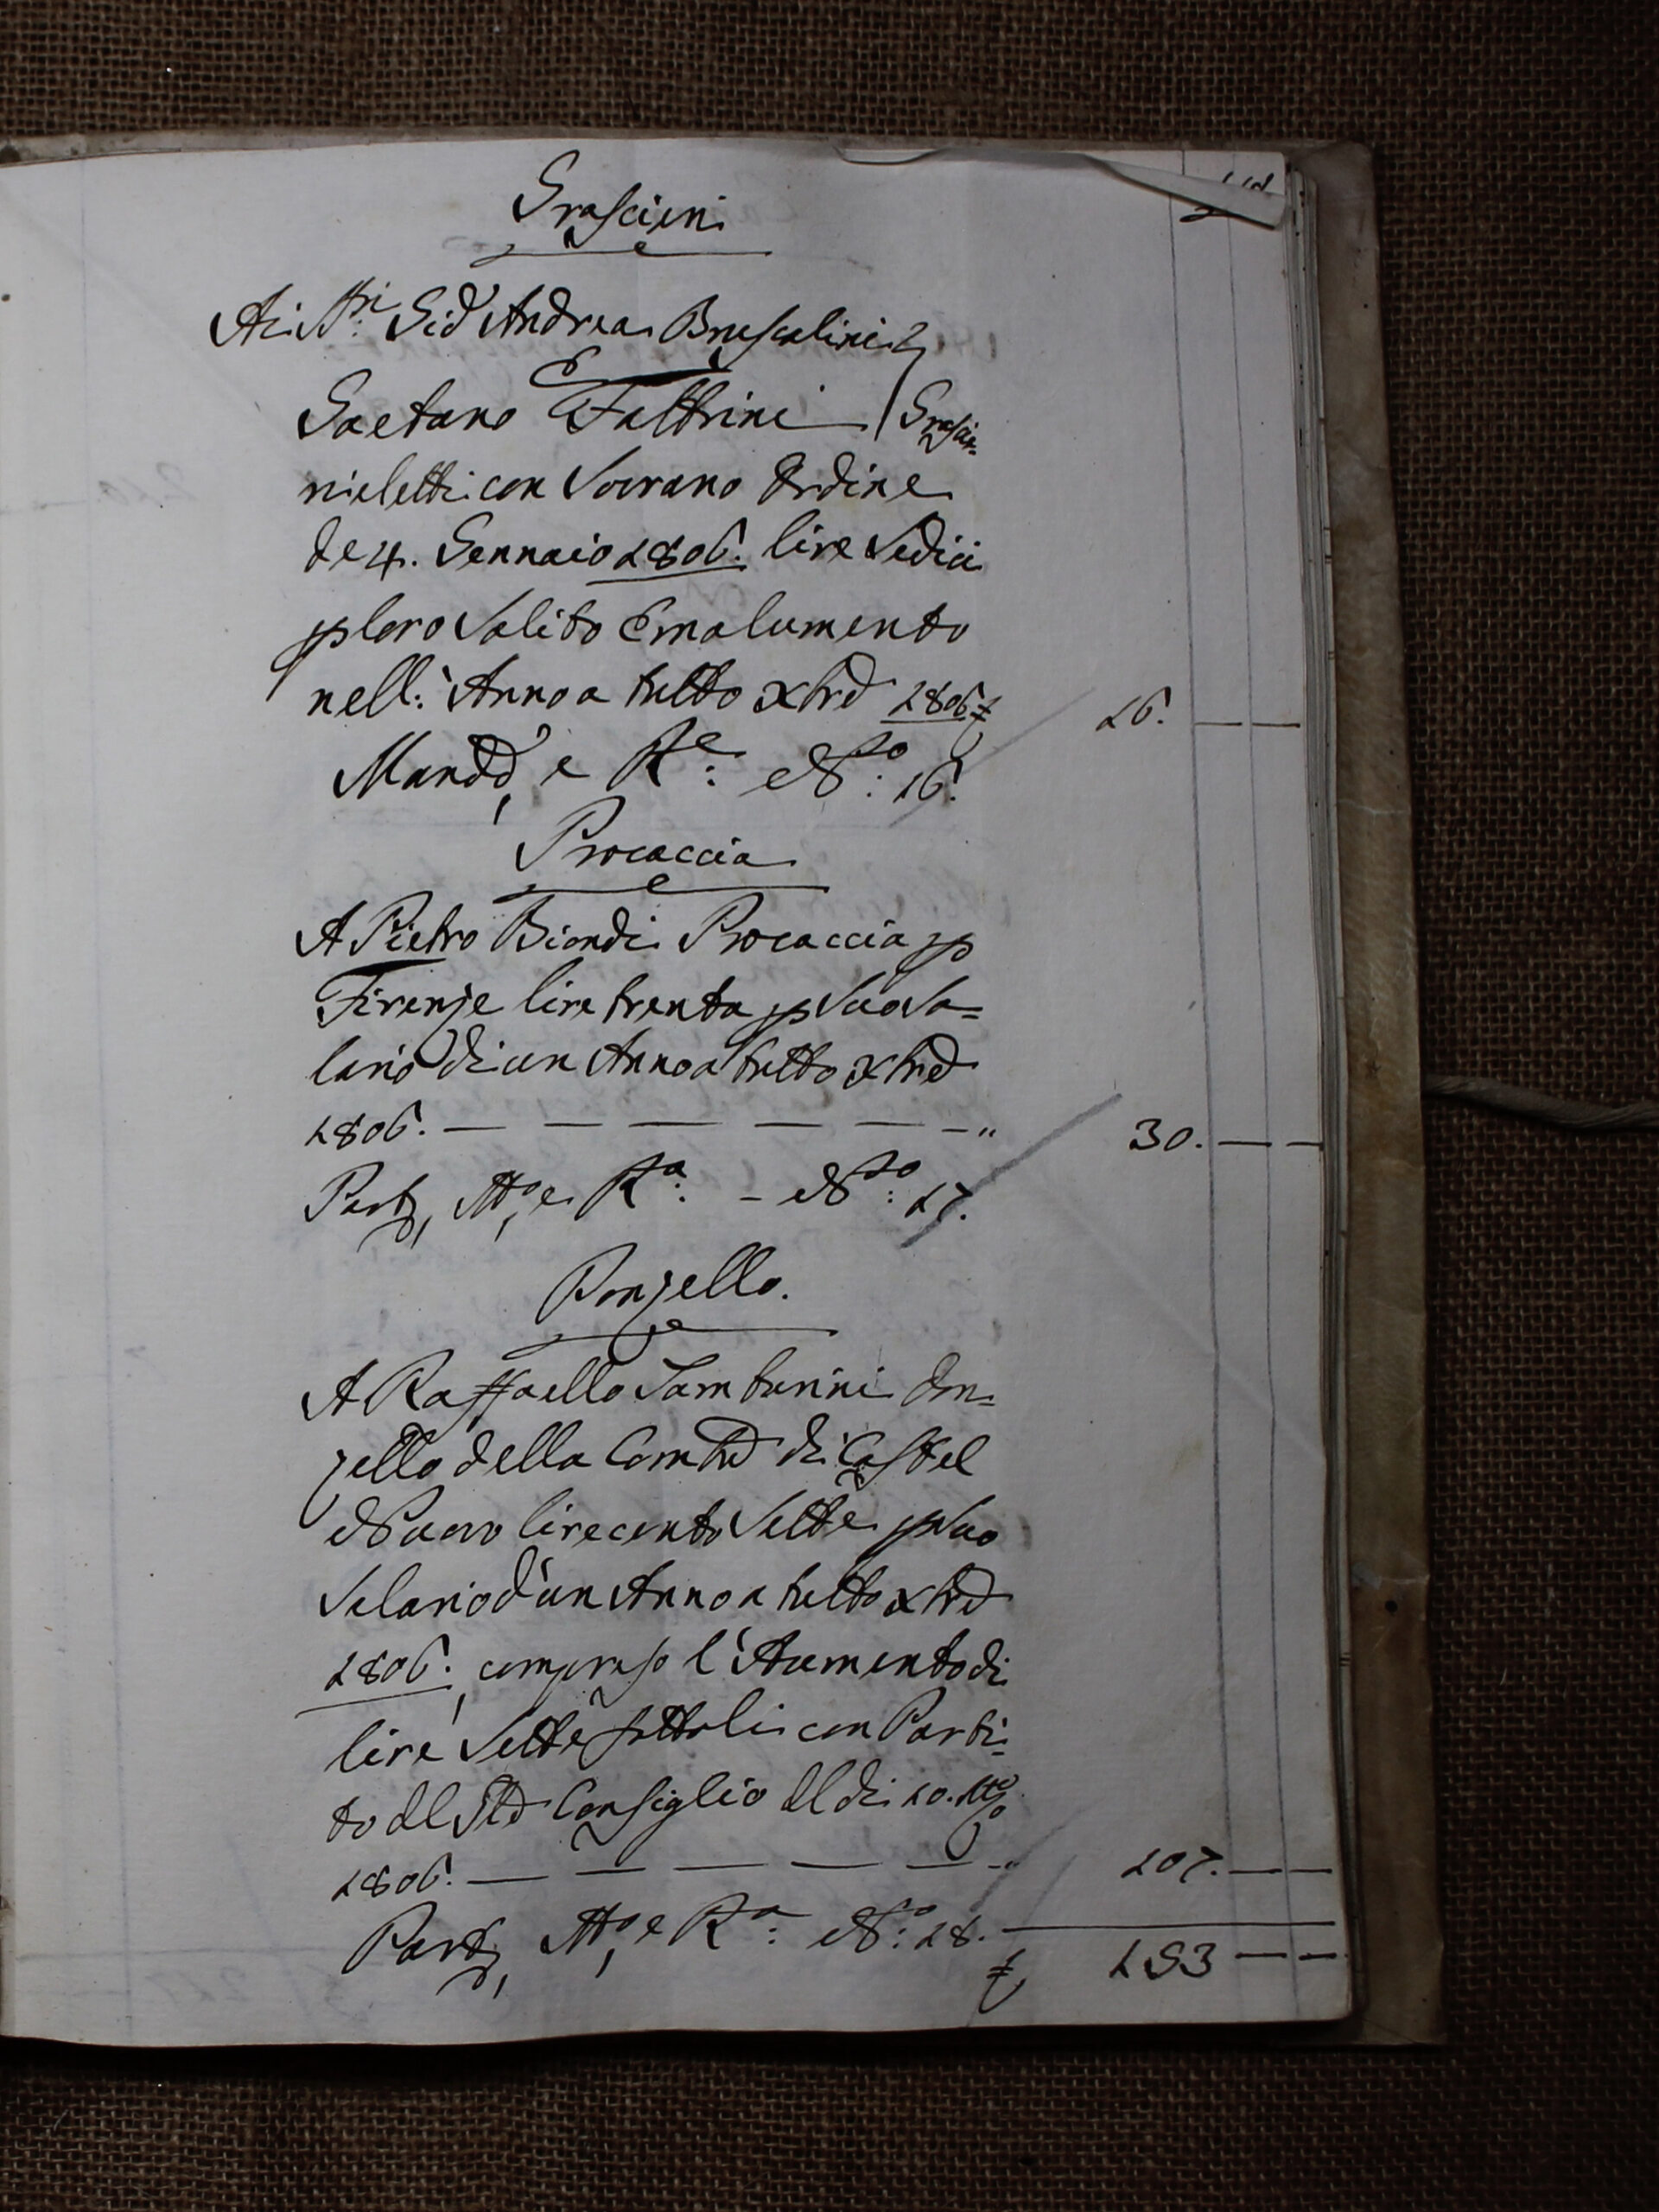 Grascieri
Ai Ssri: Gio Andrea Bruscolini, e
Gaetano Fattrini Grascie=
ri eletti con Sovrano Ordine
de 4. Gennaio 1806. lire Sedici
p loro Solito Emolumento
nell: Anno a tutto xbre 1806 £
16. — —
Mandd, e Re: No: 16.
Procaccia
A Pietro Biondi Procaccia p
Firenze lire trenta p Suo Sa=
lario di un Anno a tutto xbre
1806. — — — — — — "
30. — —
Parto, Mo, e Ra: - No: 17.
Donzello.
A Raffaello Tamburini Don=
zello della Comtà di Castel
Nuovo lire cento Sette p Suo
Salario d'un Anno a tutto xbre
1806. compreso l'Aumento di
lire Sette fattoli con Parti=
to del Gle Consiglio del di 10.
1806. — — — — — "
107. — —
Parto, Mo, e Ra: No: 18.
£ 153 — —